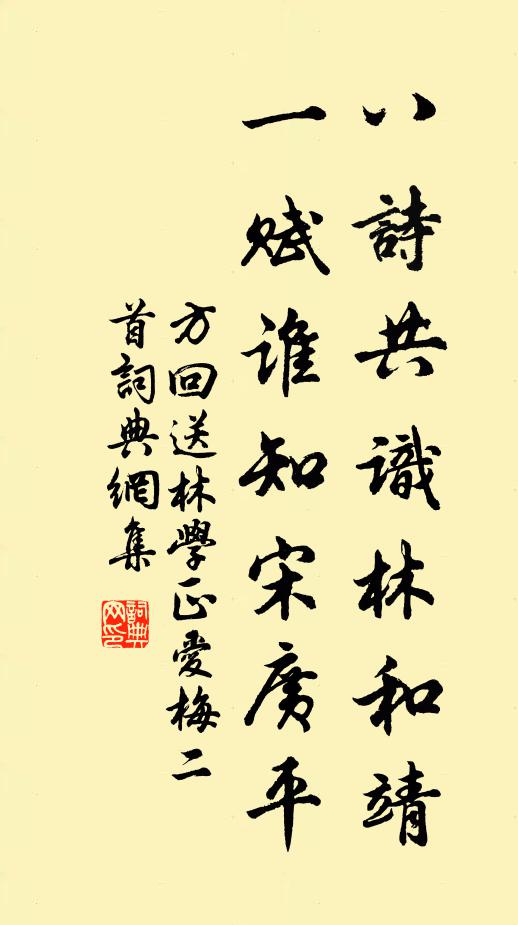 八詩共識林和靖
一賦誰知宋廣平
方回送林學正愛梅二
首詞典網集
詞典网印